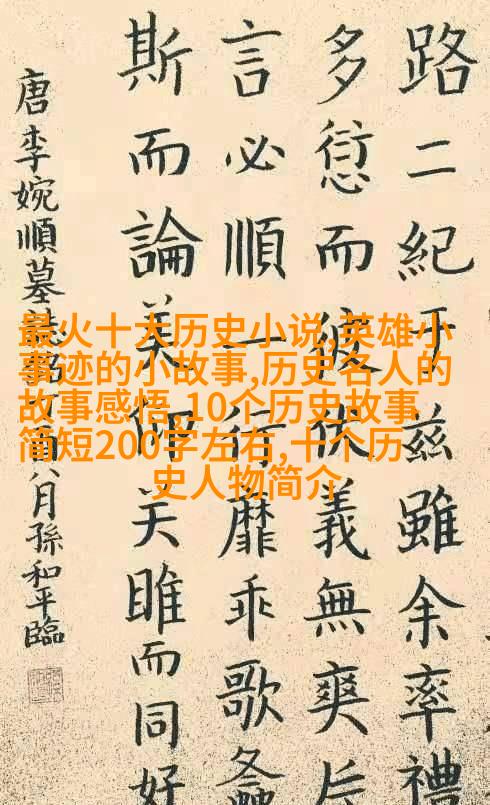 路二紀于茲雖余率禮
多愆而義無爽
言必順一行靡乖歌
斯而論美关雎而同好
唐李婉順墓誌銘酉八月孫和平臨
最火十大历史小说,英雄小
事迹的小故事,历史名人的
故事感悟,10个历史故事
简短200字左右,十个历
史人物简介